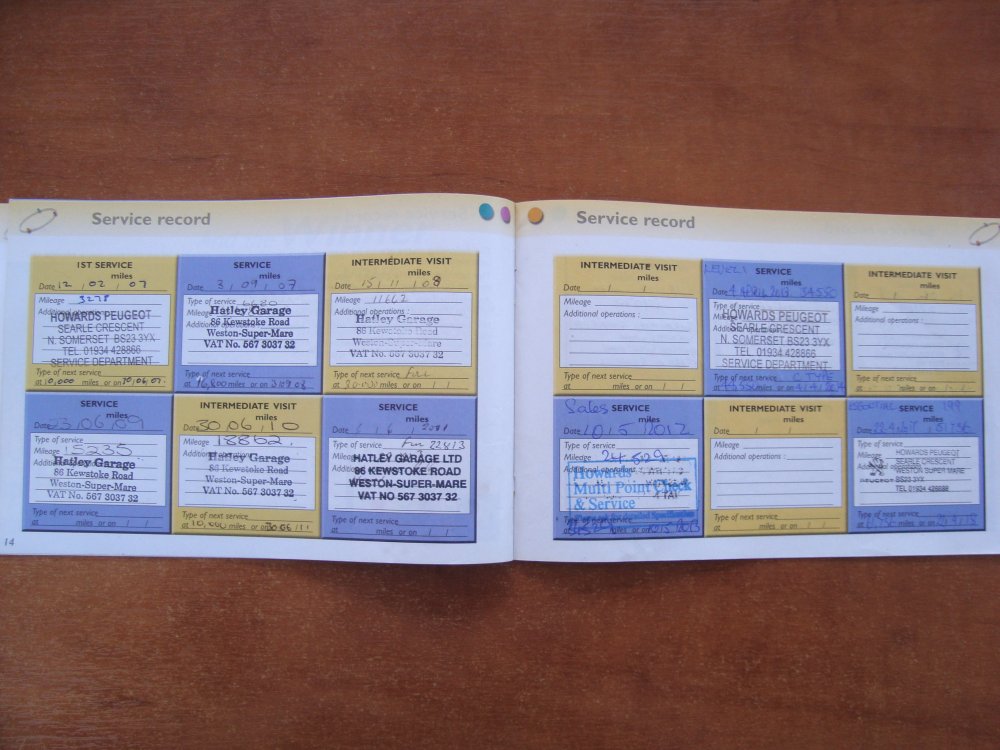 Service record
1ST SERVICE
miles
Date 12 , 02 , 07
Mileage 3278
Additional operations
HOWARDS PEUGEOT
SEARLE CRESCENT
N. SOMERSET BS23 3YX
TEL. 01934 428866
SERVICE DEPARTMENT
Type of next service
at 10,000 miles or on 30,06,07.
SERVICE
miles
Date 3 , 09 , 07
Type of service
Mileage
Hatley Garage
86 Kewstoke Road
Weston-Super-Mare
VAT No. 567 3037 32
Type of next service
at miles or on
INTERMEDIATE VISIT
miles
Date 15 , 11 , 08
Mileage 11662
Additional operations :
Hatley Garage
86 Kewstoke Road
Weston-Super-Mare
VAT No. 567 3037 32
Type of next service
at miles or on / /
SERVICE
miles
Date 23,06,09
Type of service
Mileage 15235
Hatley Garage
86 Kewstoke Road
Weston-Super-Mare
VAT No. 567 3037 32
Type of next service
at miles or on / /
INTERMEDIATE VISIT
miles
Date 30.06.10
Mileage 18862.
Hatley Garage
86 Kewstoke Road
Weston-Super-Mare
VAT No. 567 3037 32
Type of next service
at 10,000 miles or on 30.06.11
SERVICE
miles
Date 2011
Type of service 22813
Mileage
HATLEY GARAGE LTD
86 KEWSTOKE ROAD
WESTON-SUPER-MARE
VAT NO 567 3037 32
Type of next service
at miles or on / /
14
Service record
INTERMEDIATE VISIT
miles
Date / /
Mileage
Additional operations :
Type of next service
at miles or on / /
SERVICE
miles
Date 2013 34550
Type of service
HOWARDS PEUGEOT
SEARLE CRESCENT
N. SOMERSET BS23 3YX
TEL. 01934 428866
SERVICE DEPARTMENT
Type of next service C TYPE
at miles or on
INTERMEDIATE VISIT
miles
Date / /
Mileage
Additional operations :
Type of next service
at miles or on / /
Sales SERVICE
miles
Date 10 , 5 , 2012
Type of service
Mileage 24,529
Howards
Multi Point Check
& Service
at miles or on
INTERMEDIATE VISIT
miles
Date / /
Mileage
Additional operations :
Type of next service
at miles or on / /
SERVICE
miles
Date
Type of service
Mileage
HOWARDS PEUGEOT
SEARLE CRESCENT
WESTON SUPER MARE
BS23 3YX
PEUGEOT
Type of next service
at miles or on